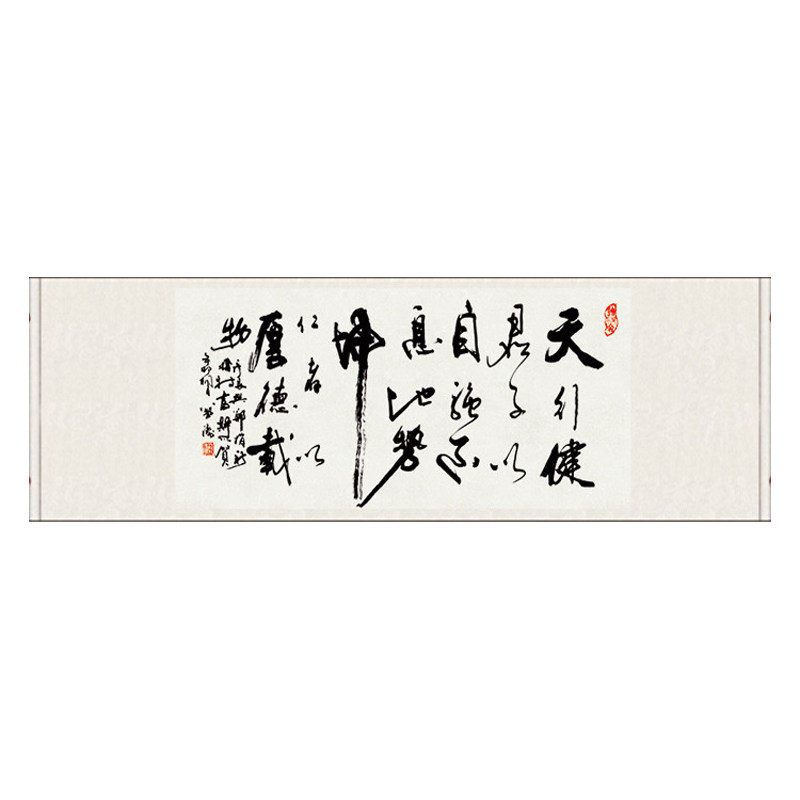 天行健
君子以
自强不
息地势
坤
仁者以
厚德载
物